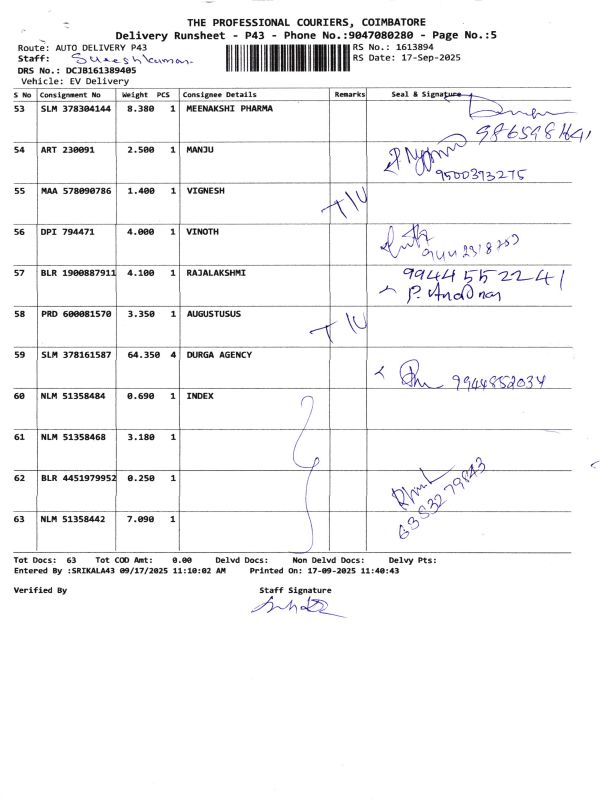 THE PROFESSIONAL COURIERS, COIMBATORE
Delivery Runsheet - P43 - Phone No.:9047080280 - Page No.:5
Route: AUTO DELIVERY P43
RS No.: 1613894
Staff: Sureshkumar
RS Date: 17-Sep-2025
DRS No.: DCJB161389405
Vehicle: EV Delivery
S No Consignment No Weight PCS Consignee Details Remarks Seal & Signature
53 SLM 378304144 8.380 1 MEENAKSHI PHARMA
54 ART 230091 2.500 1 MANJU
9500393275
55 MAA 578090786 1.400 1 VIGNESH T/U
56 DPI 794471 4.000 1 VINOTH
57 BLR 1900887911 4.100 1 RAJALAKSHMI 9944552241
58 PRD 600081570 3.350 1 AUGUSTUSUS T/U
59 SLM 378161587 64.350 4 DURGA AGENCY
9944852034
60 NLM 51358484 0.690 1 INDEX
61 NLM 51358468 3.180 1
62 BLR 4451979952 0.250 1
6383279843
63 NLM 51358442 7.090 1
Tot Docs: 63 Tot COD Amt: 0.00 Delvd Docs: Non Delvd Docs: Delvy Pts:
Entered By :SRIKALA43 09/17/2025 11:10:02 AM Printed On: 17-09-2025 11:40:43
Verified By Staff Signature